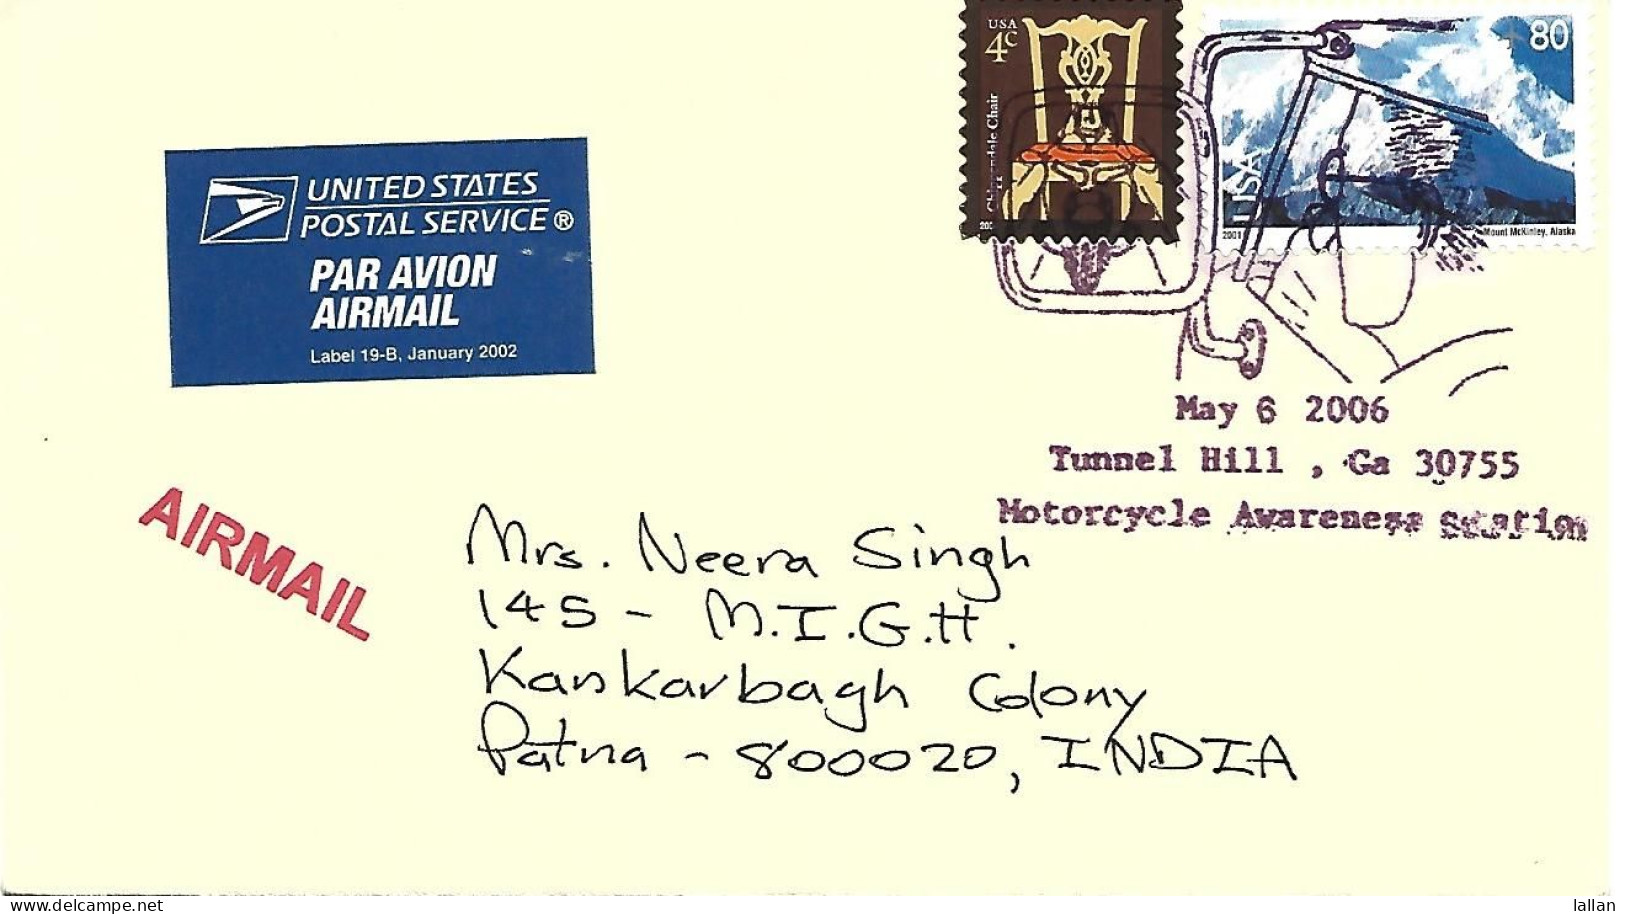 USA
4c
Chippendale Chair
80
USA
2001
Mount McKinley, Alaska
UNITED STATES
POSTAL SERVICE®
PAR AVION
AIRMAIL
Label 19-B, January 2002
May 6 2006
Tunnel Hill , Ga 30755
Motorcycle Awareness Station
AIRMAIL
Mrs. Neera Singh
145 - M.I.G.H.
Kankarbagh Colony
Patna - 800020, INDIA
www.delcampe.net
lallan